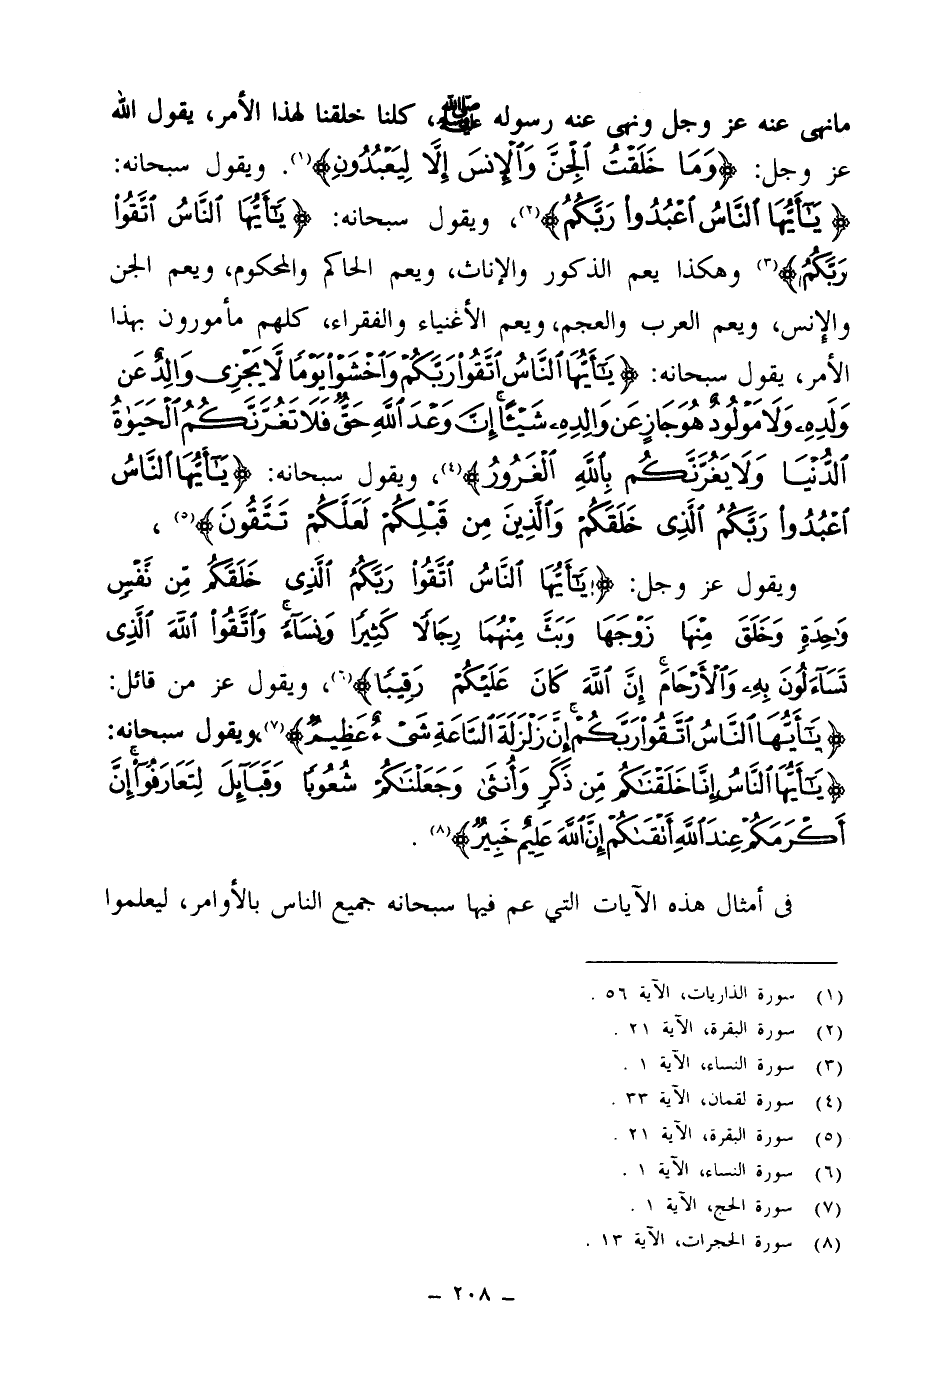 مانهى عنه عز وجل ونهى عنه رسوله ﷺ، كلنا خلقنا لهذا الأمر، يقول الله
عز وجل: ﴿وَمَا خَلَقْتُ ٱلْجِنَّ وَٱلْإِنسَ إِلَّا لِيَعْبُدُونِ﴾(١). ويقول سبحانه:
﴿يَٰٓأَيُّهَا ٱلنَّاسُ ٱعْبُدُوا۟ رَبَّكُمُ﴾(٢)، ويقول سبحانه: ﴿يَٰٓأَيُّهَا ٱلنَّاسُ ٱتَّقُوا۟
رَبَّكُمُ﴾(٣) وهكذا يعم الذكور والإناث، ويعم الحاكم والمحكوم، ويعم الجن
والإنس، ويعم العرب والعجم، ويعم الأغنياء والفقراء، كلهم مأمورون بهذا
الأمر، يقول سبحانه: ﴿يَٰٓأَيُّهَا ٱلنَّاسُ ٱتَّقُوا۟ رَبَّكُمْ وَٱخْشَوْا۟ يَوْمًا لَّا يَجْزِى وَالِدٌ عَن
وَلَدِهِۦ وَلَا مَوْلُودٌ هُوَ جَازٍ عَن وَالِدِهِۦ شَيْـًٔا ۚ إِنَّ وَعْدَ ٱللَّهِ حَقٌّ ۖ فَلَا تَغُرَّنَّكُمُ ٱلْحَيَوٰةُ
ٱلدُّنْيَا وَلَا يَغُرَّنَّكُم بِٱللَّهِ ٱلْغَرُورُ﴾(٤)، ويقول سبحانه: ﴿يَٰٓأَيُّهَا ٱلنَّاسُ
ٱعْبُدُوا۟ رَبَّكُمُ ٱلَّذِى خَلَقَكُمْ وَٱلَّذِينَ مِن قَبْلِكُمْ لَعَلَّكُمْ تَتَّقُونَ﴾(٥) ،
ويقول عز وجل: ﴿يَٰٓأَيُّهَا ٱلنَّاسُ ٱتَّقُوا۟ رَبَّكُمُ ٱلَّذِى خَلَقَكُم مِّن نَّفْسٍ
وَٰحِدَةٍ وَخَلَقَ مِنْهَا زَوْجَهَا وَبَثَّ مِنْهُمَا رِجَالًا كَثِيرًا وَنِسَآءً ۚ وَٱتَّقُوا۟ ٱللَّهَ ٱلَّذِى
تَسَآءَلُونَ بِهِۦ وَٱلْأَرْحَامَ ۚ إِنَّ ٱللَّهَ كَانَ عَلَيْكُمْ رَقِيبًا﴾(٦)، ويقول عز من قائل:
﴿يَٰٓأَيُّهَا ٱلنَّاسُ ٱتَّقُوا۟ رَبَّكُمْ ۚ إِنَّ زَلْزَلَةَ ٱلسَّاعَةِ شَىْءٌ عَظِيمٌ﴾(٧)، ويقول سبحانه:
﴿يَٰٓأَيُّهَا ٱلنَّاسُ إِنَّا خَلَقْنَٰكُم مِّن ذَكَرٍ وَأُنثَىٰ وَجَعَلْنَٰكُمْ شُعُوبًا وَقَبَآئِلَ لِتَعَارَفُوٓا۟ ۚ إِنَّ
أَكْرَمَكُمْ عِندَ ٱللَّهِ أَتْقَىٰكُمْ ۚ إِنَّ ٱللَّهَ عَلِيمٌ خَبِيرٌ﴾(٨) .
فى أمثال هذه الآيات التي عم فيها سبحانه جميع الناس بالأوامر، ليعلموا
(١) سورة الذاريات، الآية ٥٦ .
(٢) سورة البقرة، الآية ٢١ .
(٣) سورة النساء، الآية ١ .
(٤) سورة لقمان، الآية ٣٣ .
(٥) سورة البقرة، الآية ٢١ .
(٦) سورة النساء، الآية ١ .
(٧) سورة الحج، الآية ١ .
(٨) سورة الحجرات، الآية ١٣ .
– ٢٠٨ –